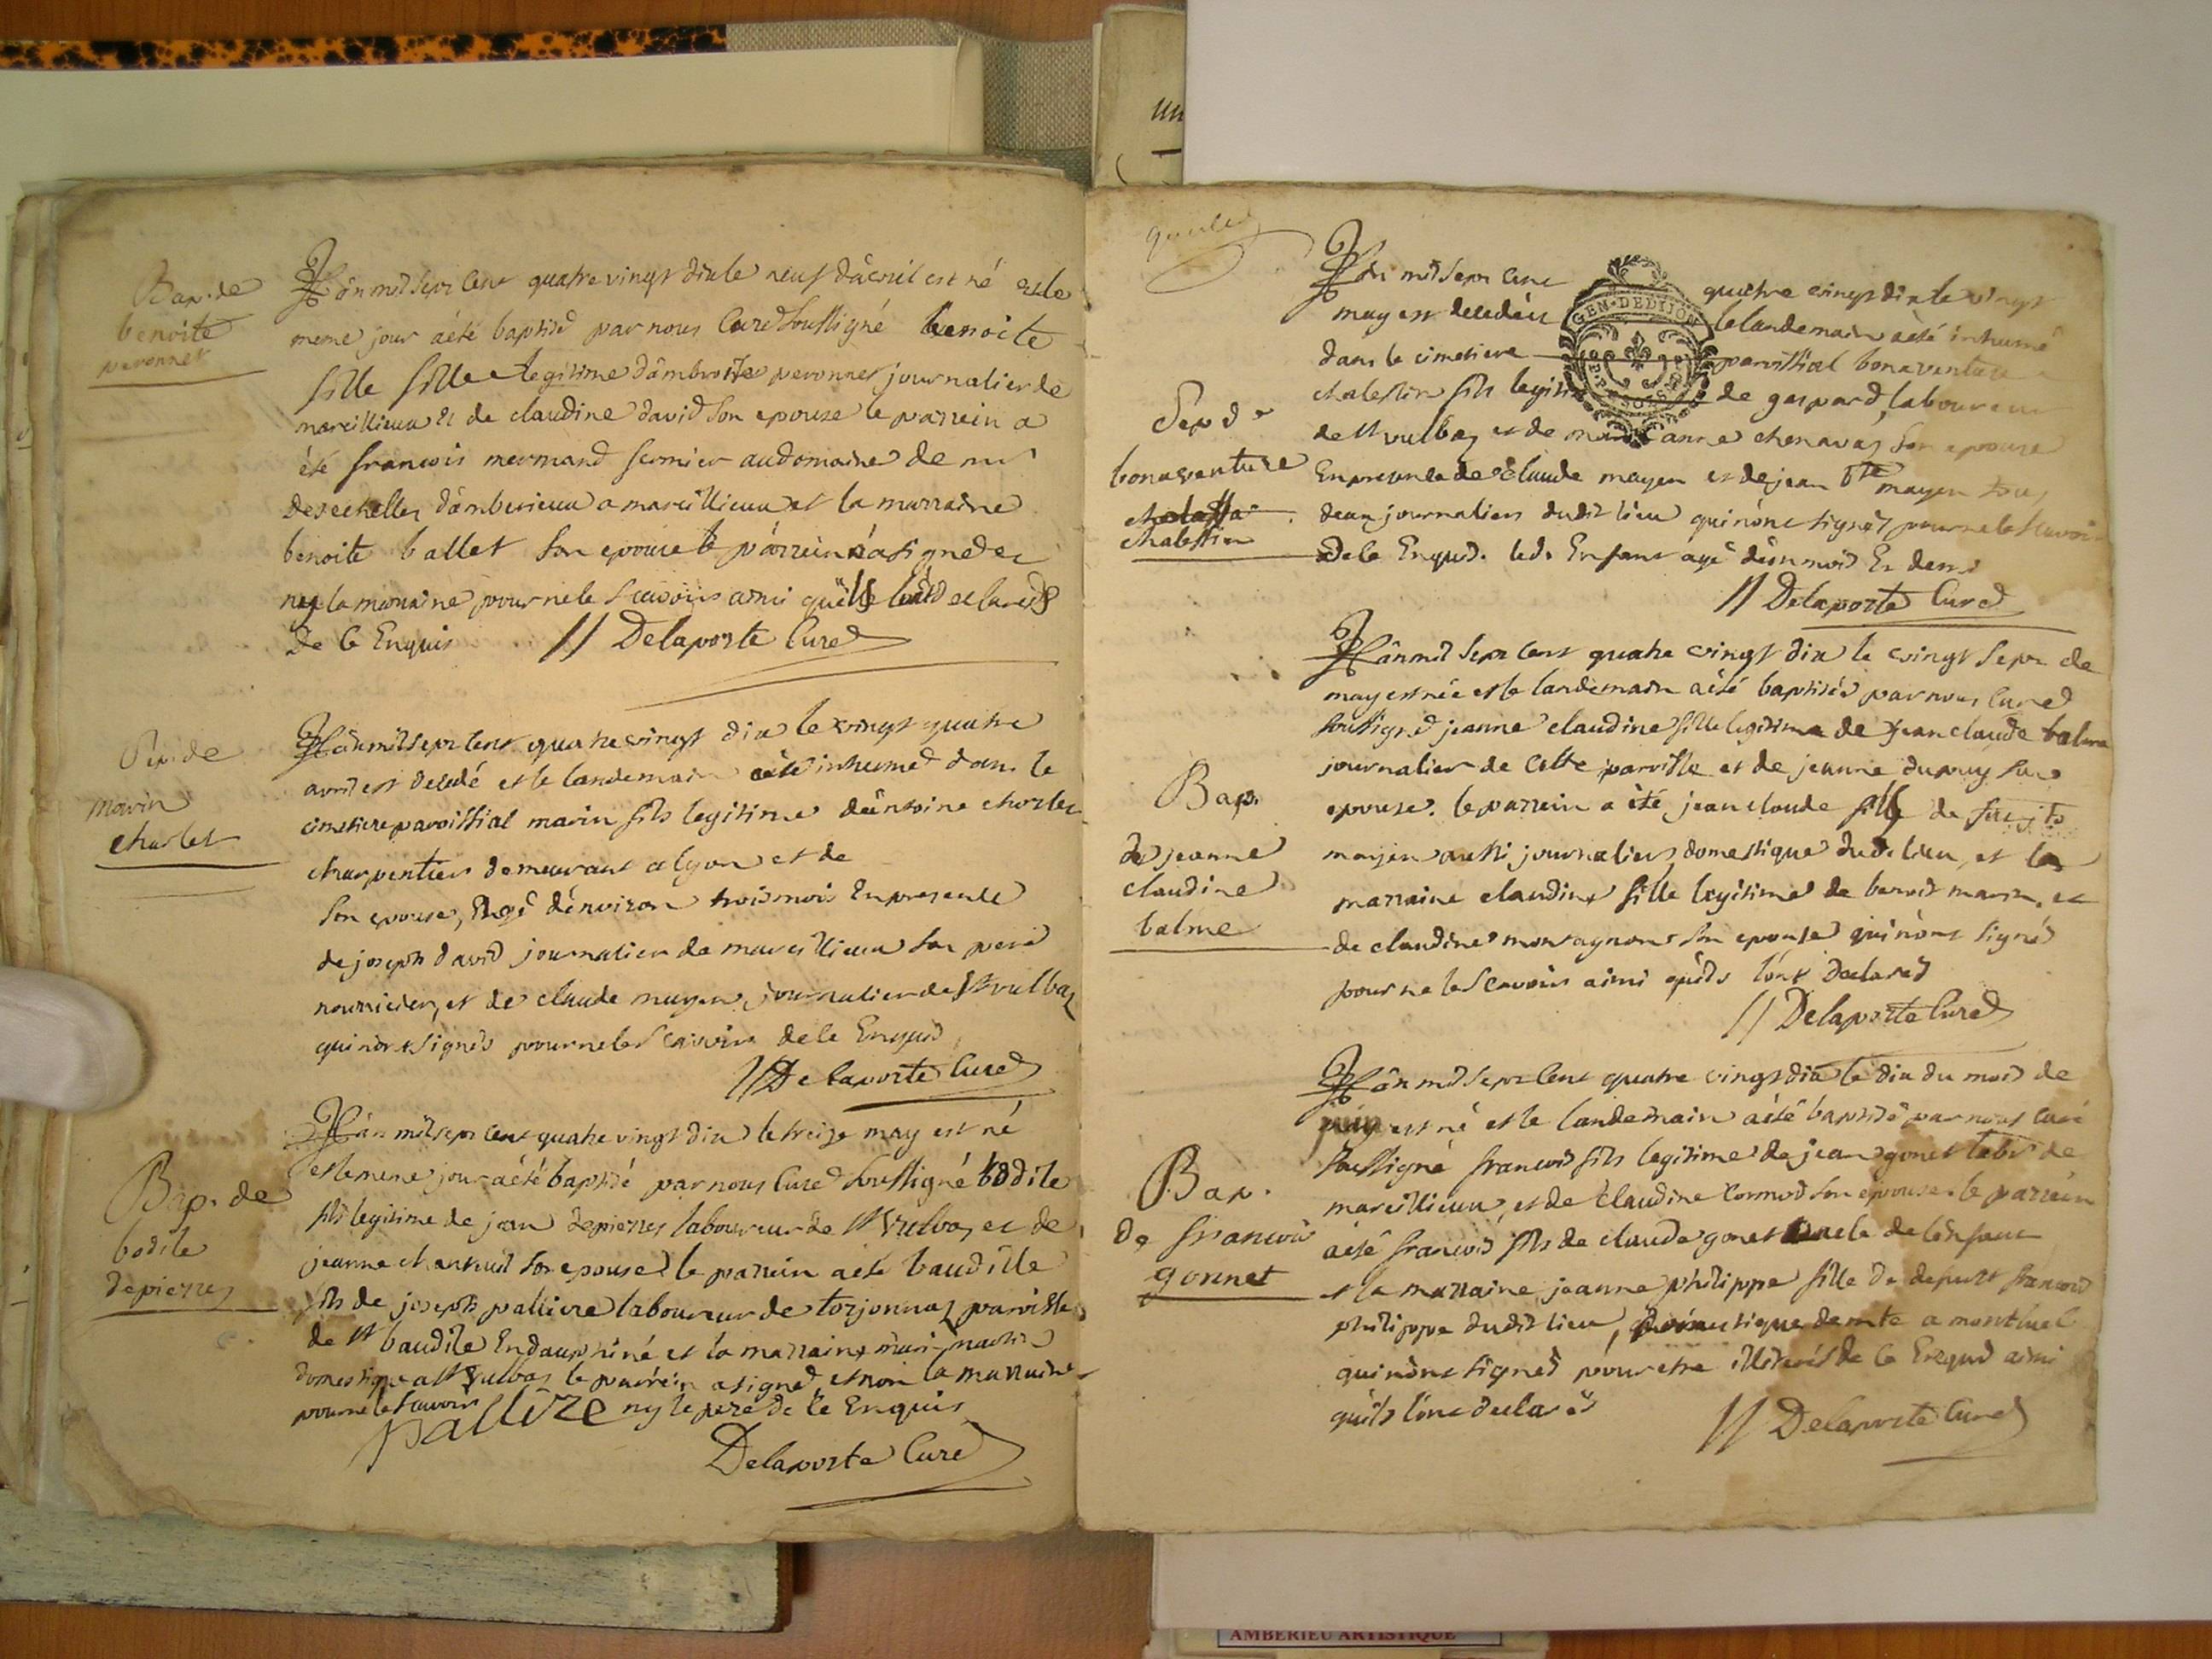 Bap. de
benoite
peronnet
L'an mil sept cent quatre vingt dix le neuf d'avril est né et le
meme jour a été baptisé par nous Curé soussigné benoite
fille fille legitime d'ambroise peronnet journalier de
marcillieux et de claudine david son epouse le parrein a
été francois mermand fermier au domaine de mr
desechelles d'amberieux a marcillieux et la marraine
benoite ballet son epouse le parrein n'a signé de
ny la marraine pour ne le scavoir ainsi qu'ils l'ont declaré
de ce Enquis // Delaporte Curé
Sep. de
marin
charlet
L'an mil sept cent quatre vingt dix le vingt quatre
avril est decedé et le landemain a été inhumé dans le
cimetiere paroissial marin fils legitime d'antoine charlet
charpentier demeurant a lyon et de
son epouse, agé d'environ trois mois En presence
de joseph david journalier de marcillieux son pere
nourricier, et de claude mayen journalier de st vulbaz
qui n'ont signés pour ne le scavoir de ce Enquis
// Delaporte Curé
Bap. de
bodile
depierres
L'an mil sept cent quatre vingt dix le treize may est né
et le meme jour a été baptisé par nous Curé soussigné bodile
fils legitime de jean depierres laboureur de st vulbaz et de
jeanne chantuil son epouse le parrein a été baudille
fils de joseph palliere laboureur de torjonnaz paroisse
de st baudile En dauphiné et la marraine marie martin
domestique a st vulbas le parrein a signé et non la marraine
pour ne le scavoir ny le pere de ce Enquis
pallize
Delaporte Curé
Sep de
bonaventure
chalestier
L'an mil sept cent quatre vingt dix le vingt
may est decedé et le landemain a été inhumé
dans le cimetiere paroissial bonaventure
GEN. DE DIJON
chalestier fils legitime de gaspard laboureur
de st vulbaz et de marie anne chenavaz son epouse
En presence de claude mayen et de jean bte mayen tous
deux journaliers dudit lieu qui n'ont signés pour ne le scavoir
de ce Enquis. led. Enfant agé d'un mois Et demi
// Delaporte Curé
Bap.
de jeanne
claudine
balme
L'an mil sept cent quatre vingt dix le vingt sept de
may est née et le landemain a été baptisée par nous Curé
soussigné jeanne claudine fille legitime de jean claude balme
journalier de cette paroisse et de jeanne dupuy sa
epouse. le parrein a été jean claude fils de
mayen aussi journalier domestique dud. lieu, et la
marraine claudine fille legitime de benoit marin, et
de claudine montagnon son epouse qui n'ont signés
pour ne le scavoir ainsi qu'ils l'ont declarés
// Delaporte Curé
Bap.
de francois
gonnet
L'an mil sept cent quatre vingt dix le dix du mois de
juin est né et le landemain a été baptisé par nous curé
soussigné francois fils legitime de jean gonet labr de
marcillieux, et de claudine cormod son epouse. le parrein
a été francois fils de claude gonet oncle de l'enfant
et la marraine jeanne philippe fille de defunt francois
philippe dudit lieu, domestique demte a montluel
qui n'ont signés pour etre illiterés de ce Enquis ainsi
qu'ils l'ont declarés // Delaporte Curé
AMBERIEU ARTISTIQUE